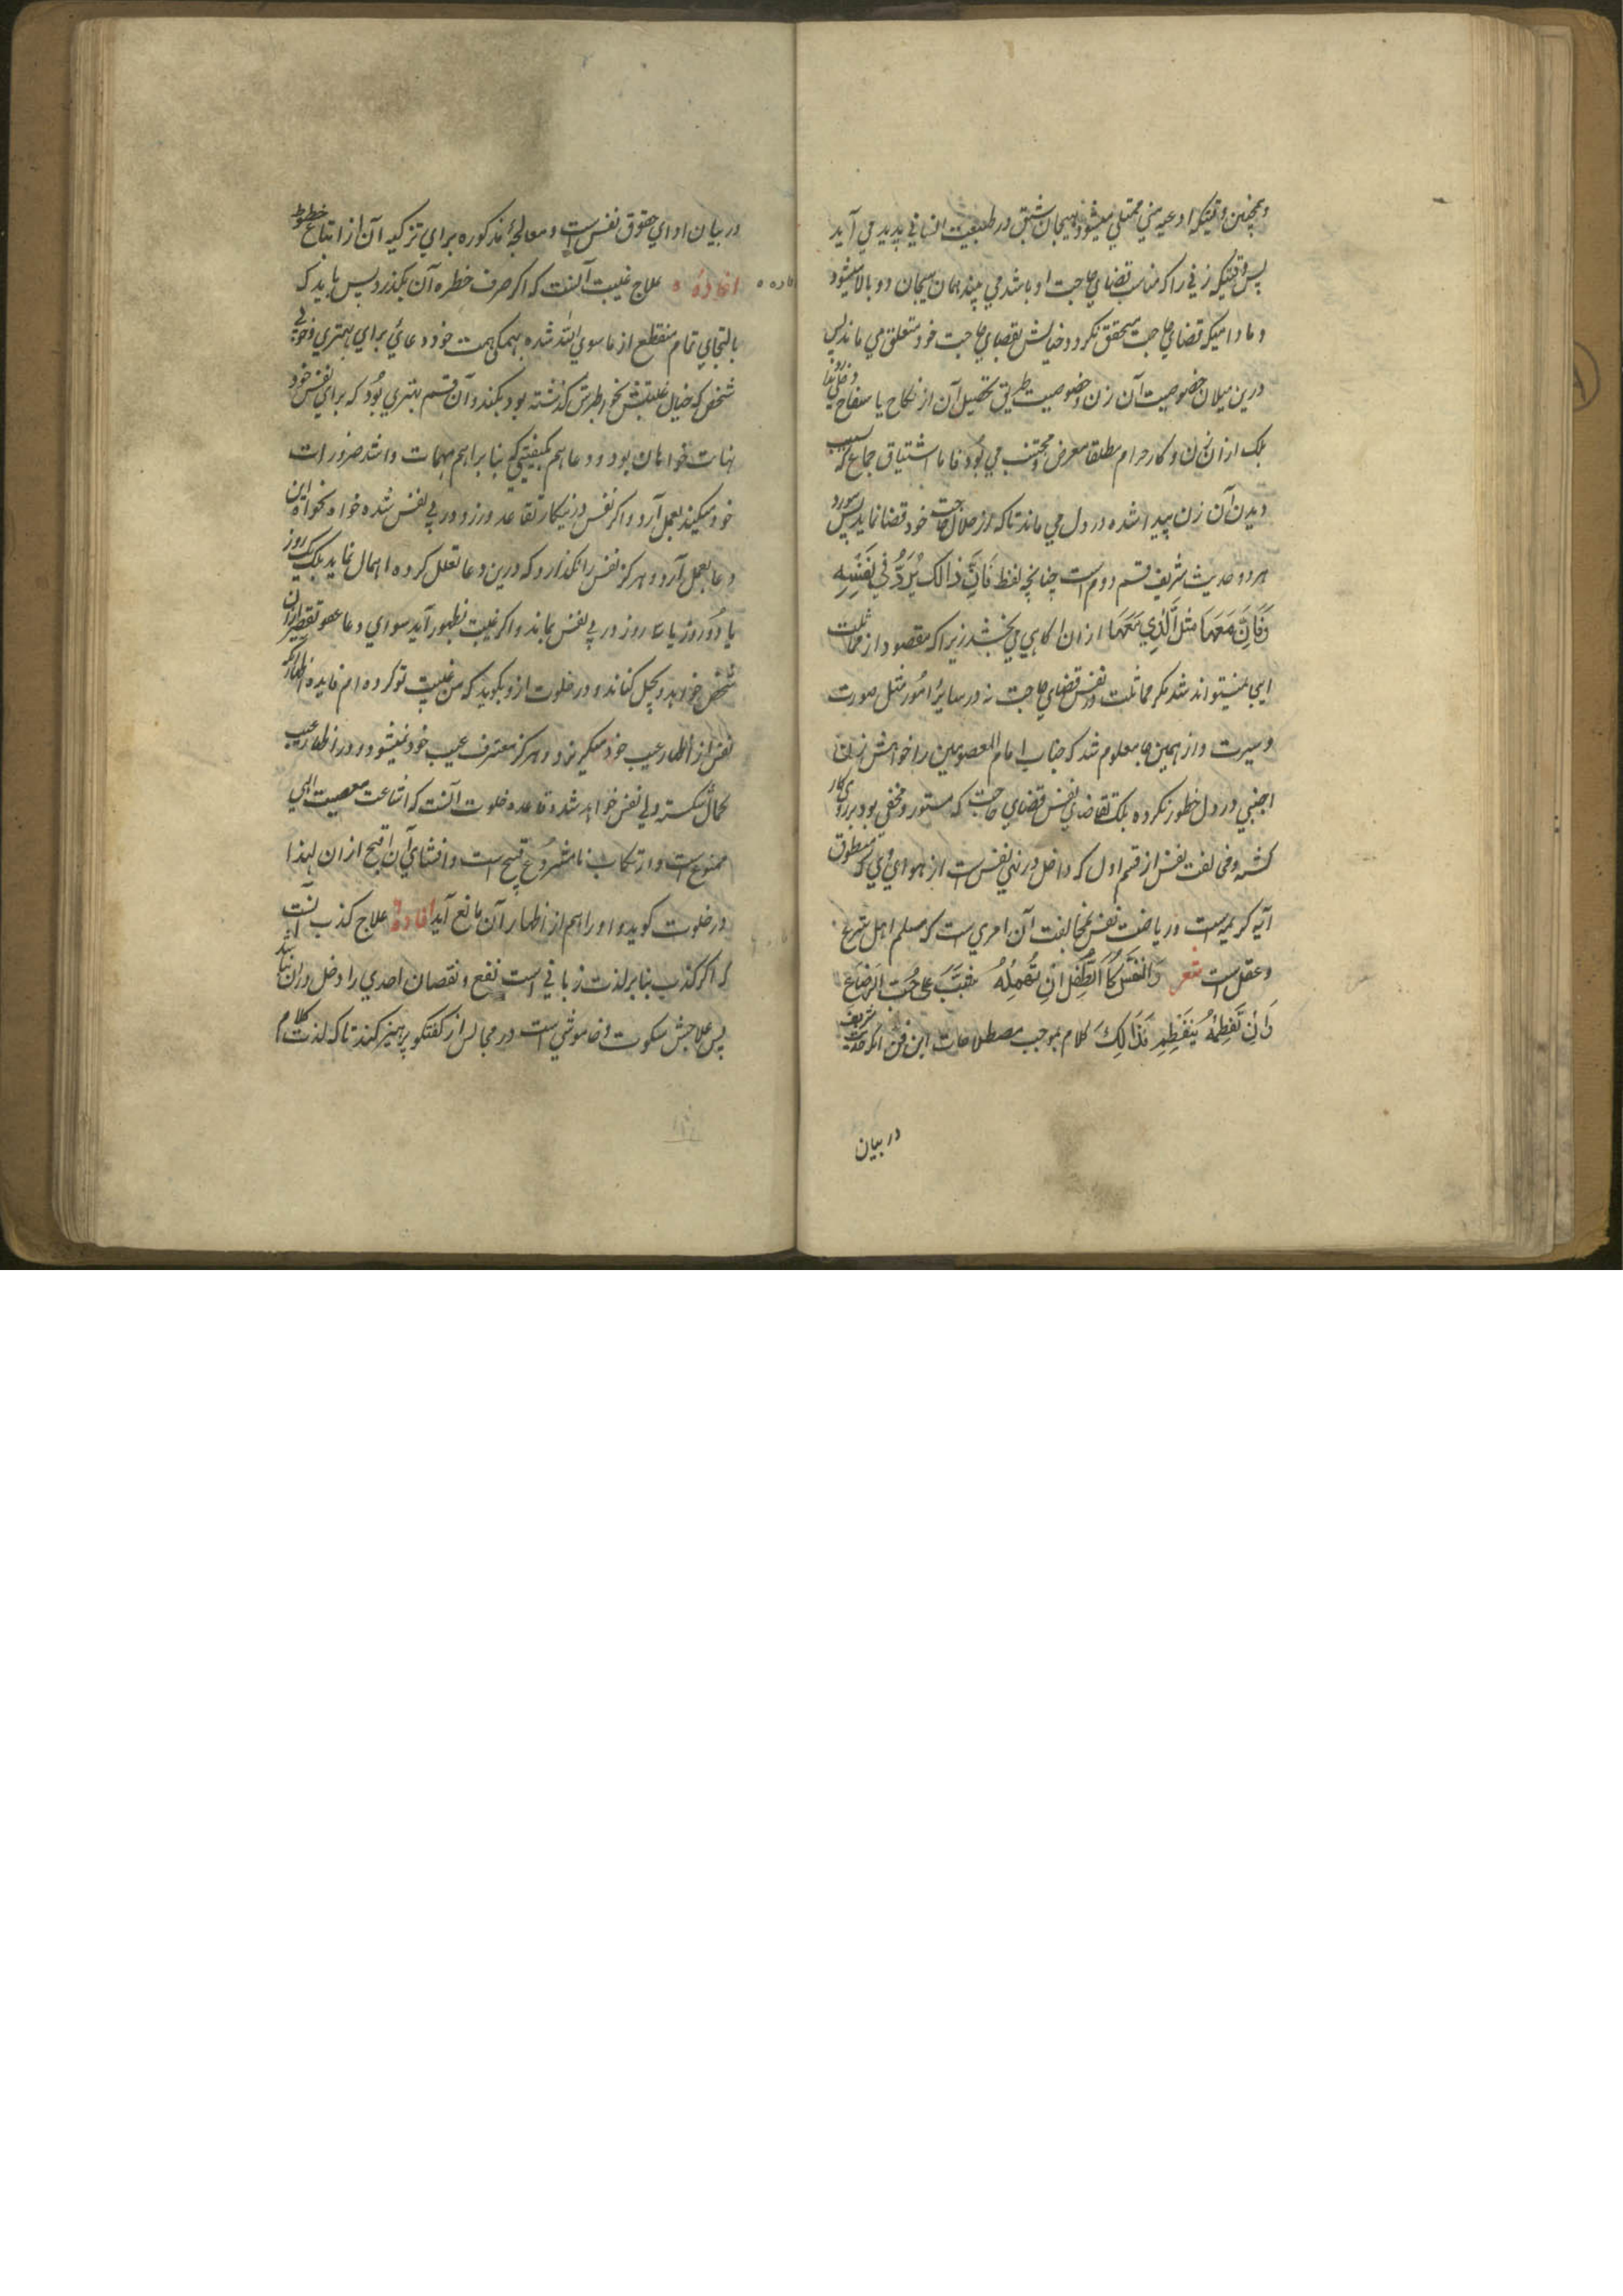 و همچنین وقتیکه اوعیه منی ممتلی میشود هیجان شبق در طبیعت انسانی پدید می آید
پس وقتیکه زنی را که مناسب بقضای حاجت او باشد می بیند همان هیجان دو بالا میشود
و مادامیکه قضای حاجت متحقق نگردد خیالش بقضای حاجت خود متعلق می ماند لیکن
درین میلان خصوصیت آن زن و خصوصیت طریق تحصیل آن از نکاح یا سفاح
بلکه ازان زن و کار حرام مطلقا معرض و مجتنب می بود فاما اشتیاق جماع که بسبب
دیدن آن زن پیدا شده در دل می ماند تاکه از حلال حاجت خود قضا نماید پس مورد
هر دو حدیث شریف قسم دوم است چنانچه لفظ فَاِنَّ ذالک یَرُدُّ فی نَفْسِه
وَفَاِنَّ مَعَهَا مثلَ الَّذِي مَعَهَا ازان آگاهی می بخشد زیرا که مقصود از مماثلت
اینجا نمیتواند شد مگر مماثلت در نفس قضای حاجت نه در سایر امور مثل صورت
و سیرت و از همین جا معلوم شد که جناب امام المعصومین را خواهش زن
اجنبی در دل خطور نکرده بلکه تقاضای نفس قضای حاجت که مستور و مخفی بود بر روی کار
گشته و مخالفت نفس از قسم اول که داخل در نهی نفس است از هوای وی که منطوق
آیه کریمه است و ریاضت نفس بمخالفت آن امری ست که مسلم اهل شرع
و عقل است شعر وَالنَّفْسُ کَالطِّفْلِ اِنْ تُهْمِلْهُ شَبَّ عَلی حُبِّ الرَّضَاعِ
وَاِنْ تَفْطِمْهُ یَنْفَطِمِ کذالِکَ کلام بموجب مصطلاحات این فن اگر حدیث شریف
در بیان
در بیان ادای حقوق نفس است و معالجهٔ مذکوره برای تزکیه آن از اتباع حظوظ
افادهٔ علاج غیبت آنست که اگر صرف خطره آن بگذرد پس باید که
بالتجای تمام منقطع از ماسوی الله شده بهمگی همت خود دعائی برای بهتری و خوبی
شخصی که خیال غیبتش بخاطرش گذشته بود بکند و آن قسم بهتری بود که برای نفس خود
نهایت خواهان بود و دعا هم بکیفیتی که بنابر اهم مهمات و اشد ضرورات
خود میکند بعمل آرد و اگر نفس در نیکار تقاعد ورزد در پی نفس شده خواه نخواه این
دعا بعمل آرد و هرگز نفس را نگذارد که درین دعا تعلل کرده اهمال نماید بلکه یک روز
یا دو روز یا سه روز در پی نفس بماند و اگر غیبت بظهور آید سوای دعا عفو تقصیر ازان
شخص خواهد و بحل کناند و در خلوت ازو بگوید که من غیبت تو کرده ام فایده اظهار آنکه
نفس از اظهار عیب خود میگریزد و هرگز معترف عیب خود نمیشود و در اظهار عیب
کمال شکسته دلی نفس خواهد شد و قاعده خلوت آنست که اشاعت معصیت الهی
ممنوع است و ارتکاب نامشروع قبیح است و افشای آن اقبح ازان لهذا
در خلوت گوید و او را هم از اظهار آن مانع آید افادهٔ علاج کذب آنست
که اگر کذب بنابر لذت زبانی است نفع و نقصان احدی را دخل دران نباشد
پس علاجش سکوت و خاموشی است در مجالس از گفتگو پرهیز کند تا که لذت کلام